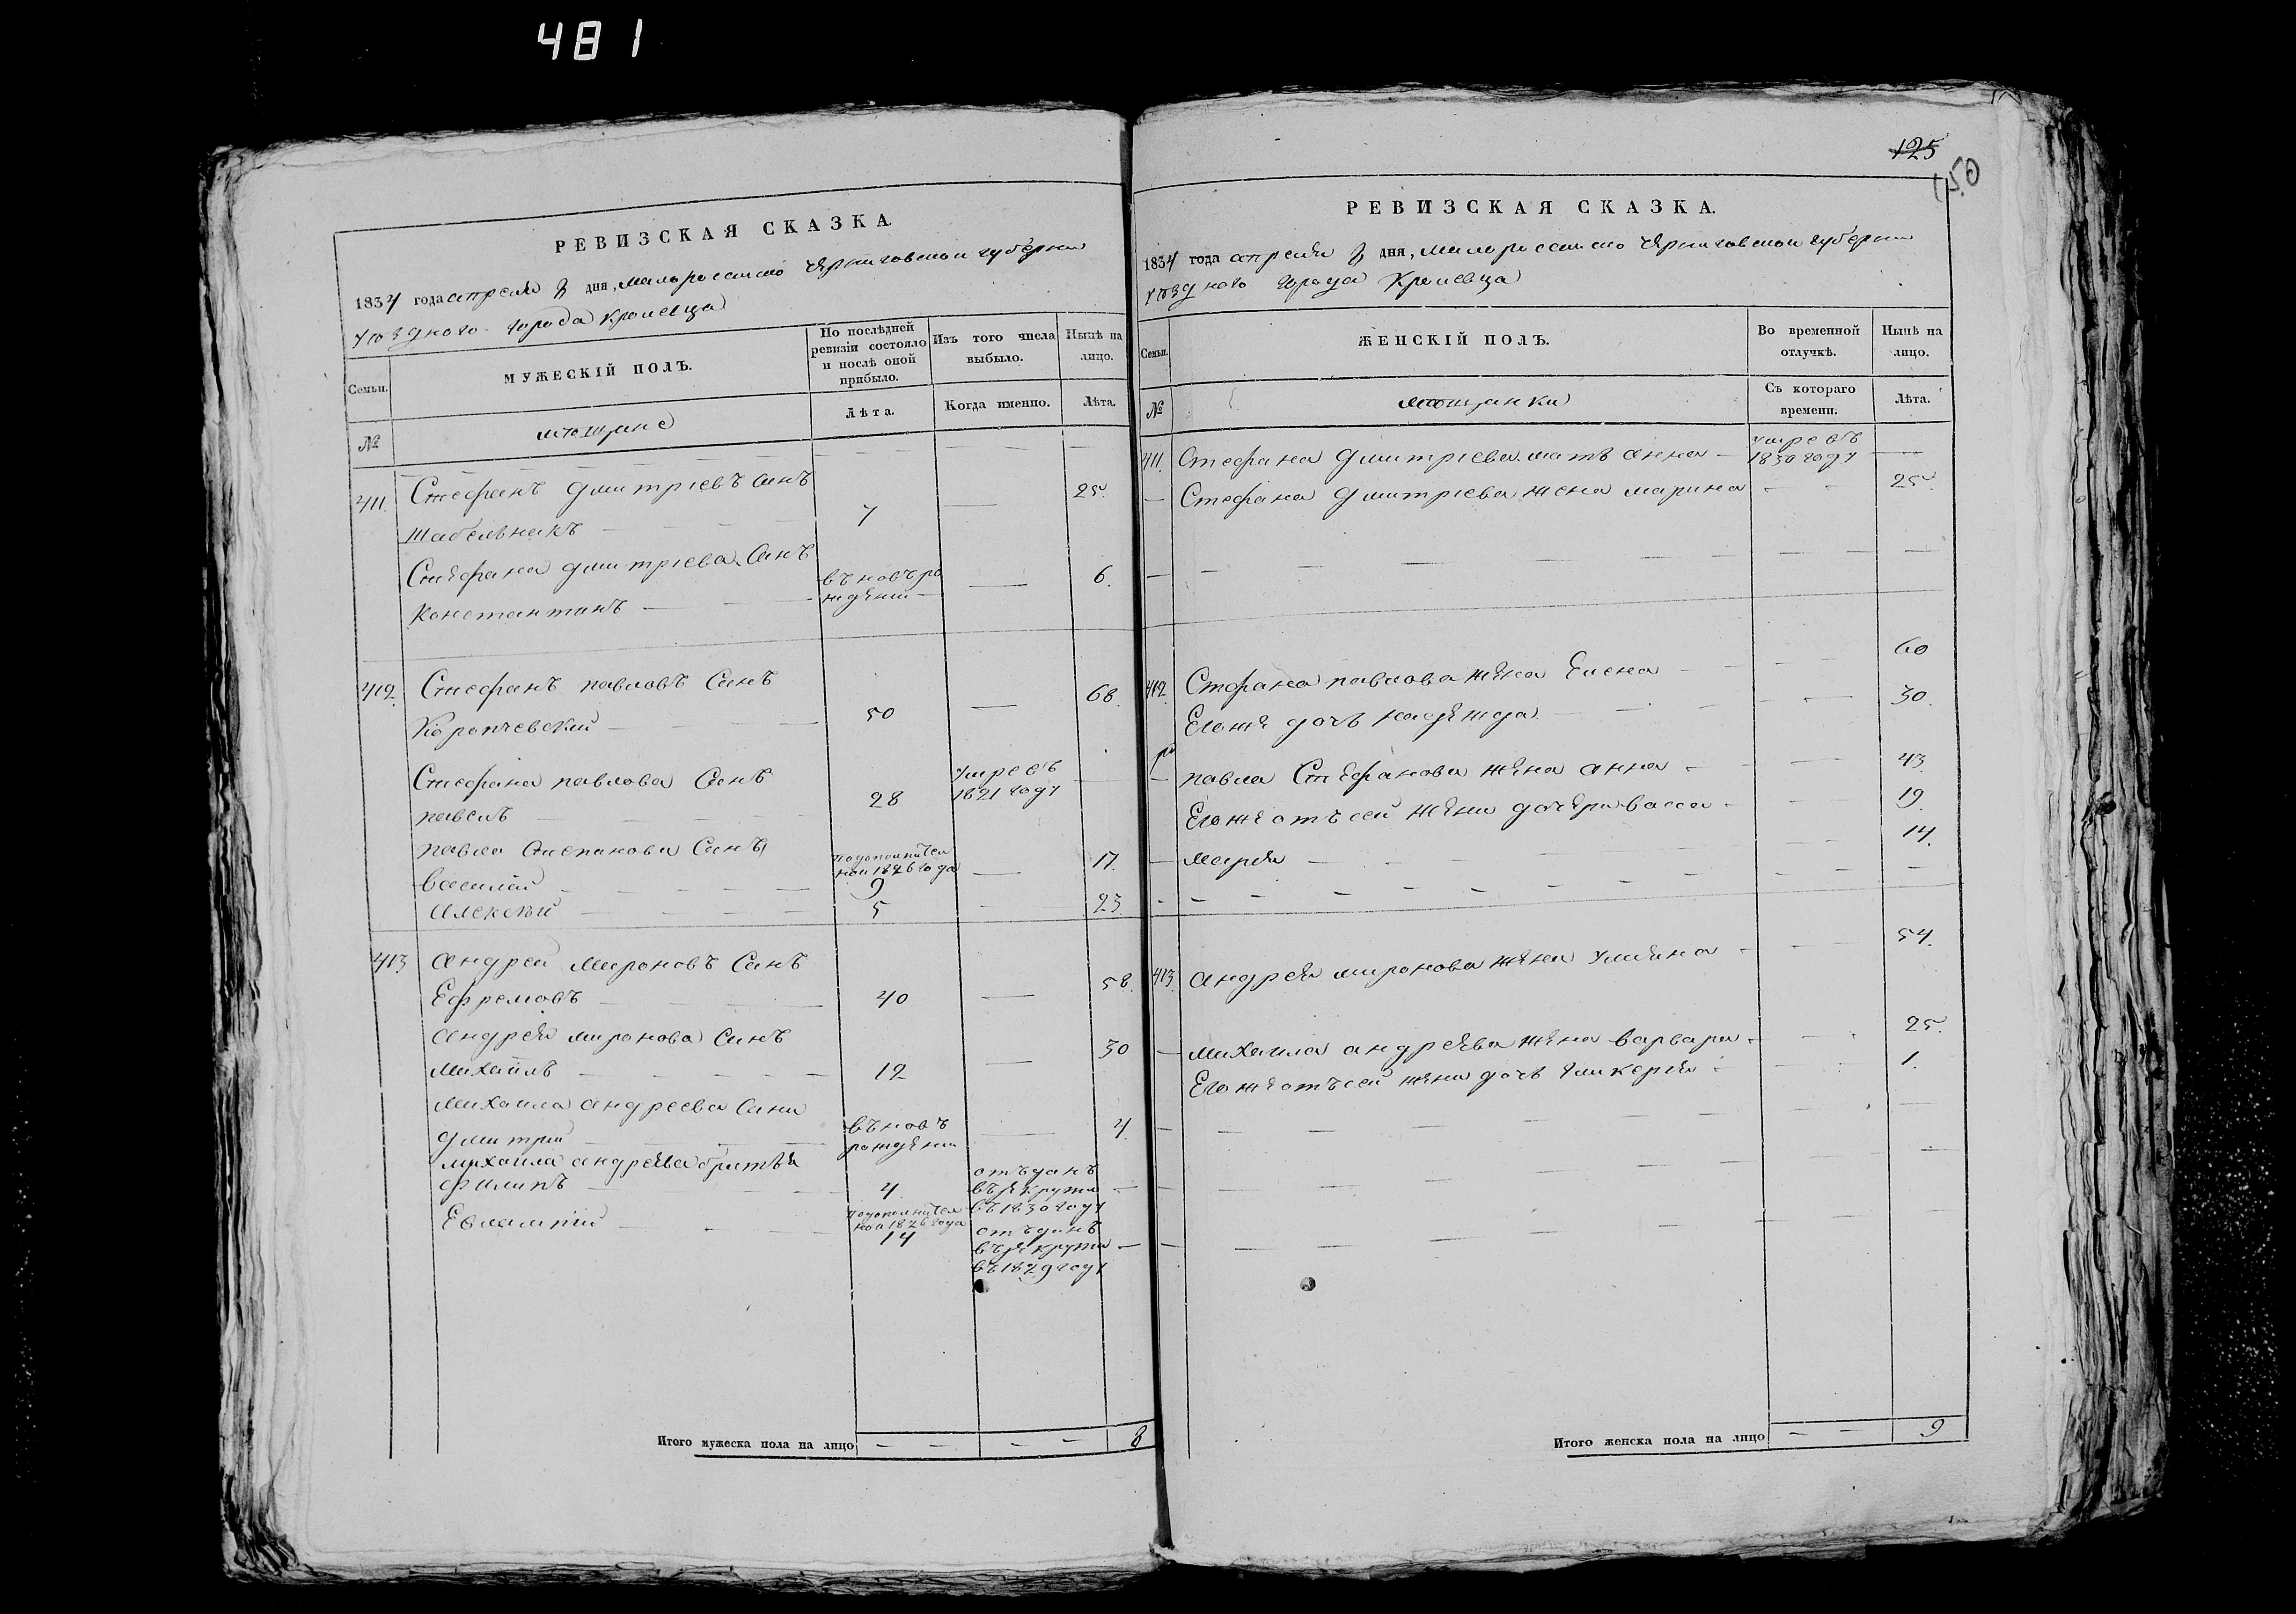 481
РЕВИЗСКАЯ СКАЗКА.
1834 года апреля дня, малоросеииско черниговской губернии
уезднаго города Кролевца
Семьи.
МУЖЕСКІЙ ПОЛЪ.
По послѣдней ревизіи состояло и послѣ оной прибыло.
Изъ того числа выбыло.
Нынѣ на лицо.
№
мещане
Лѣта.
Когда именно.
Лѣта.
411. Стефанъ Дмитріевъ Синъ 25.
Шабельникъ 7
Стефана Дмитріева Синъ въновъ ро 6.
Константинъ ждении
412. Стефанъ павловъ Синъ 68.
Коропчевский 50
Стефана павлова Синъ умре въ
павелъ 28 1821 году
павла Степанова Синъ подополнител 17.
василий ной 1826 года 9
Алексѣй 5 23.
413 Андрей мироновъ Синъ 58.
Ефремовъ 40
Андрея миронова Синъ 30
Михайлъ 12
Михаила Андреева Сини въновъ 4.
Дмитрий рождении
михаила андреева братья отъданъ
филипъ 4. въ рекруты
въ 1830 году
Евлампий подополнител ной 1826 года 14 отъданъ
въ рекруты
въ 1829 году
Итого мужеска пола на лицо 8
125
150
РЕВИЗСКАЯ СКАЗКА.
1834 года апреля дня, малоросеииско черниговской губернии
уезднаго города Кролевца
Семьи.
ЖЕНСКІЙ ПОЛЪ.
Во временной отлучкѣ.
Нынѣ на лицо.
№
мещанки
Съ котораго времени.
Лѣта.
411. Стефана Дмитріева мать анна умре въ 1830 году
Стефана Дмитріева жена марина 25.
412. Стефана павлова жена Елена 60
Его же дочь надежда 30.
павла Стефанова жена анна 43.
Его же отъ сей жени дочери васса 19.
Мария 14.
413. Андрея миронова жена улияна 54.
Михаила андреева жена варвара 25.
Его же отъ сей жени дочь гликерия 1.
Итого женска пола на лицо 9